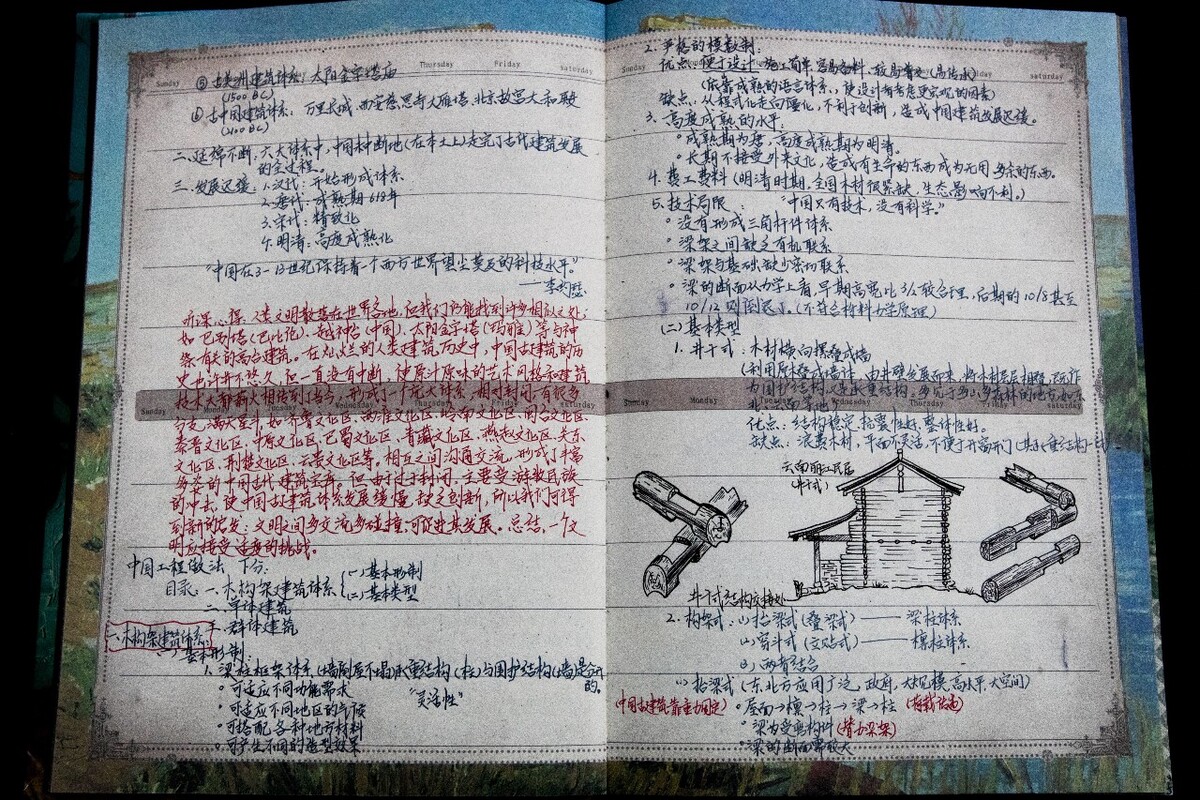 ⑤ 古美洲建筑体系：太阳金字塔庙
(1500 BC)
⑥ 古中国建筑体系：万里长城，西安慈恩寺大雁塔，北京故宫太和殿
(2100 BC)
二、延绵不断：六大体系中，中国不断地(在本土上)走完了古代建筑发展
的全过程。
三、发展迟缓：1.汉代：开始形成体系
2.唐代：成熟期618年
3.宋代：精致化
4.明清：高度成熟化
"中国在3-13世纪保持着一个西方世界望尘莫及的科技水平。"
——李约瑟
听课心得：人类文明散落在世界各地，但我们仍能找到许多相似之处，
如巴别塔(巴比伦)、越神台(中国)、太阳金字塔(玛雅)等与神
祭有关的高台建筑。在灿烂的人类建筑历史中，中国古建筑的历
史也许并不悠久，但一直没有中断，使原汁原味的艺术风格和建筑
技术大都薪火相传到当今，形成了一个庞大体系，相对封闭，有很多
分支，满天星斗，如齐鲁文化区、两淮文化区、岭南文化区、闽台文化区、
秦晋文化区、中原文化区、巴蜀文化区、青藏文化区、燕赵文化区、关东
文化区、荆楚文化区、云贵文化区等，相互之间沟通交流，形成了丰富
多姿的中国古代建筑宝库。但由于过于封闭，主要受游牧民族
的冲击，使中国古建筑体系发展缓慢，缺乏创新，所以我们可得
到新的启发：文明之间多交流多碰撞，可促进其发展。总结，一个文
明应接受适度的挑战。
中国工程做法，下分：
目录：一、木构架建筑体系 (一)基本形制
(二)基本类型
二、单体建筑
三、群体建筑
一、木构架建筑体系：
(一)基本形制：
1. 梁柱框架体系(墙倒屋不塌)承重结构(柱)与围护结构(墙)是分开
的。
可适应不同功能需求
可适应不同地区的气候 "灵活性"
可搭配各种地方材料
可产生不同的造型效果
Sunday Thursday Friday saturday
Sunday Monday Tuesday Wednesday Thursday Friday saturday
2. 严格的模数制：
优点：便于设计，施工简单，容易备料，较易普及(易传承)
(依靠成熟的语言体系，使设计者考虑更宏观的因素)
缺点：从程式化走向僵化，不利于创新，造成中国建筑发展迟缓。
3. 高度成熟的水平：
成熟期为唐，高度成熟期为明清。
长期不接受外来文化，造成有生命的东西成为无用多余的东西。
4. 费工费料(明清时期，全国木材很紧缺，生态影响不利。)
5. 技术局限： "中国只有技术，没有科学。"
没有形成三角杆件体系
梁架之间缺乏有机联系
梁架与基础缺少密切联系
梁的断面从力学上看，早期高宽比3/2较合理，后期的10/8甚至
10/12则倒退了。(不符合材料力学原理)
(二)基本类型
1. 井干式：木材横向摆叠成墙
(利用原木叠成墙体，由井壁发展而来，将木材层层相叠，既作
为围护结构，又是承重结构。多见于多山多森林的地方，如东
北、云南等地)
优点：结构稳定，抗震性好，整体性好。
缺点：浪费木材，平面不灵活，不便于开窗开门
云南丽江民居
(井干式)
井干式结构交接处
2. 构架式：(1)抬梁式(叠梁式)——梁柱体系
(2)穿斗式(交贴式)——檩柱体系
(3)两者结合
(1)抬梁式(东、北方应用广泛，政府，大规模，高水平，大空间)
(中国古建筑靠重力固定) 屋面→檩→柱→梁→柱 (荷载传递)
梁为受弯构件
梁的断面需较大